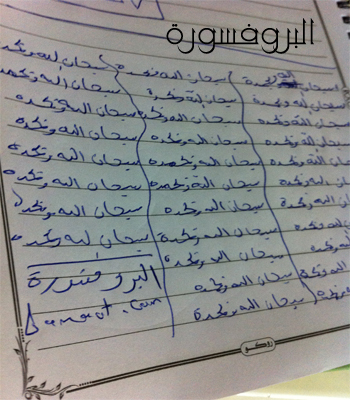 البروفسورة
سبحان الله وبحمده سبحان الله وبحمده سبحان الله وبحمده
سبحان الله وبحمده سبحان الله وبحمده سبحان الله وبحمده
سبحان الله وبحمده سبحان الله وبحمده سبحان الله وبحمده
سبحان الله وبحمده سبحان الله وبحمده سبحان الله وبحمده
سبحان الله وبحمده سبحان الله وبحمده سبحان الله وبحمده
سبحان الله وبحمده سبحان الله وبحمده سبحان الله وبحمده
سبحان الله وبحمده سبحان الله وبحمده سبحان الله وبحمده
سبحان الله وبحمده سبحان الله وبحمده سبحان الله وبحمده
سبحان الله وبحمده
سبحان الله وبحمده
سبحان الله وبحمده
البروفسورة
روكو